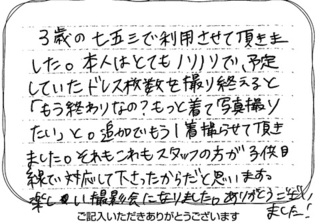 3歳の七五三で利用させて頂きま
した。本人はとてもノリノリで、予定
していたドレス枚数を撮り終えると
「もう終わりなの？もっと着て写真撮り
たい」と。追加でもう1着撮らせて頂き
ました。それもこれもスタッフの方が子供目
線で対応して下さったからだと思います。
楽しい撮影会になりました。ありがとうござい
ました！
ご記入いただきありがとうございます